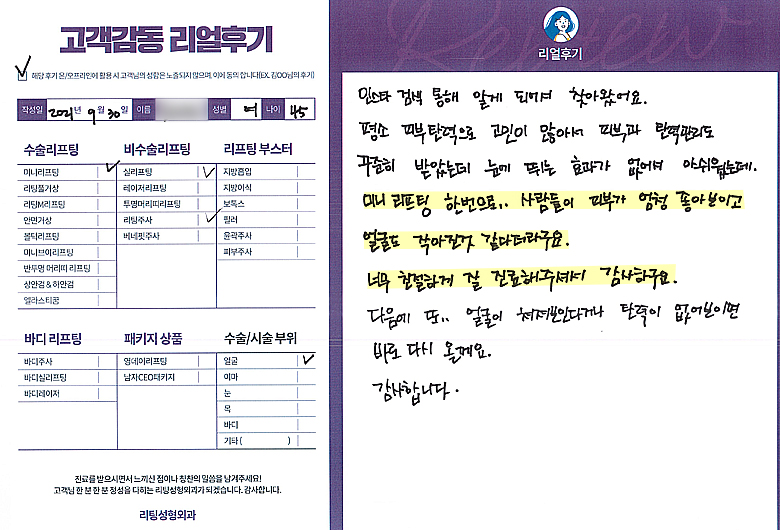 고객감동 리얼후기
해당 후기 온/오프라인에 활용 시 고객님의 성함은 노출되지 않으며, 이에 동의 합니다(EX. 김OO님의 후기)
작성일 2021년 9월 30일 이름 성별 여 나이 45
수술리프팅
미니리프팅
리팅풀거상
리팅M리프팅
안면거상
볼턱리프팅
미니브이리프팅
반투명 머리띠 리프팅
상안검 & 하안검
엘라스티꿈
비수술리프팅
실리프팅
레이저리프팅
투명머리띠리프팅
리팅주사
베네핏주사
리프팅 부스터
지방흡입
지방이식
보톡스
필러
윤곽주사
피부주사
바디 리프팅
바디주사
바디실리프팅
바디레이저
패키지 상품
영데이리프팅
남자CEO패키지
수술/시술 부위
얼굴
이마
눈
목
바디
기타 ( )
진료를 받으시면서 느끼신 점이나 칭찬의 말씀을 남겨주세요!
고객님 한 분 한 분 정성을 다하는 리팅성형외과가 되겠습니다. 감사합니다.
리팅성형외과
Review
리얼후기
인스타 검색 통해 알게 되어서 찾아왔어요.
평소 피부탄력으로 고민이 많아서 피부과 탄력관리도
꾸준히 받았는데 눈에 띄는 효과가 없어서 아쉬웠는데.
미니리프팅 한번으로.. 사람들이 피부가 엄청 좋아보이고
얼굴도 작아진것 같다더라구요.
너무 친절하게 잘 진료해주셔서 감사하구요.
다음에 또.. 얼굴이 쳐져보인다거나 탄력이 없어보이면
바로 다시 올게요.
감사합니다.